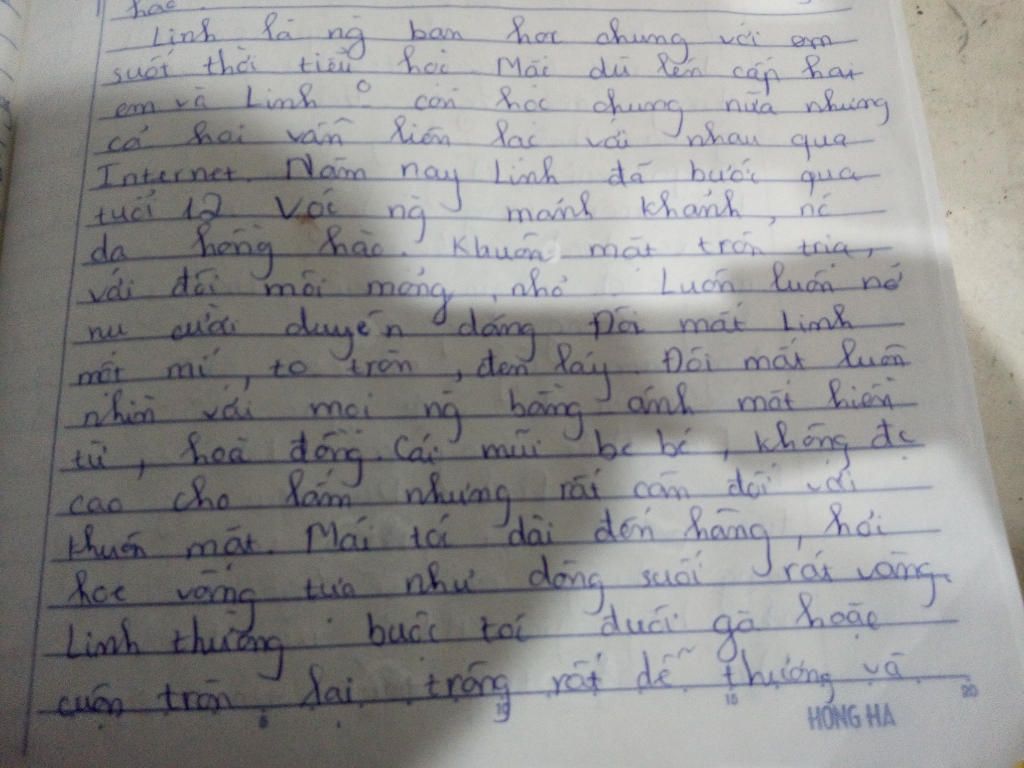 học
Linh là ng bạn học chung với em
suốt thời tiểu học Mặc dù lên cấp hai
em và Linh ko còn học chung nữa nhưng
cả hai vẫn liên lạc với nhau qua
Internet. Năm nay Linh đã bước qua
tuổi 12 Vóc ng mảnh khảnh, nc
da hồng hào. Khuôn mặt tròn trịa,
với đôi môi mỏng, nhỏ Luôn luôn nở
nụ cười duyên dáng Đôi mắt Linh
một mí, to tròn, đen láy. Đôi mắt luôn
nhìn với mọi ng bằng ánh mắt hiền
từ, hoà đồng. Cái mũi be bé, không đc
cao cho lắm nhưng rất cân đối với
khuôn mặt. Mái tóc dài đến hông, hơi
hoe vàng tựa như dòng suối rất vàng.
Linh thường buộc tóc đuôi gà hoặc
cuốn tròn lại trông rất dễ thương và
5 10 15 20
HONG HA